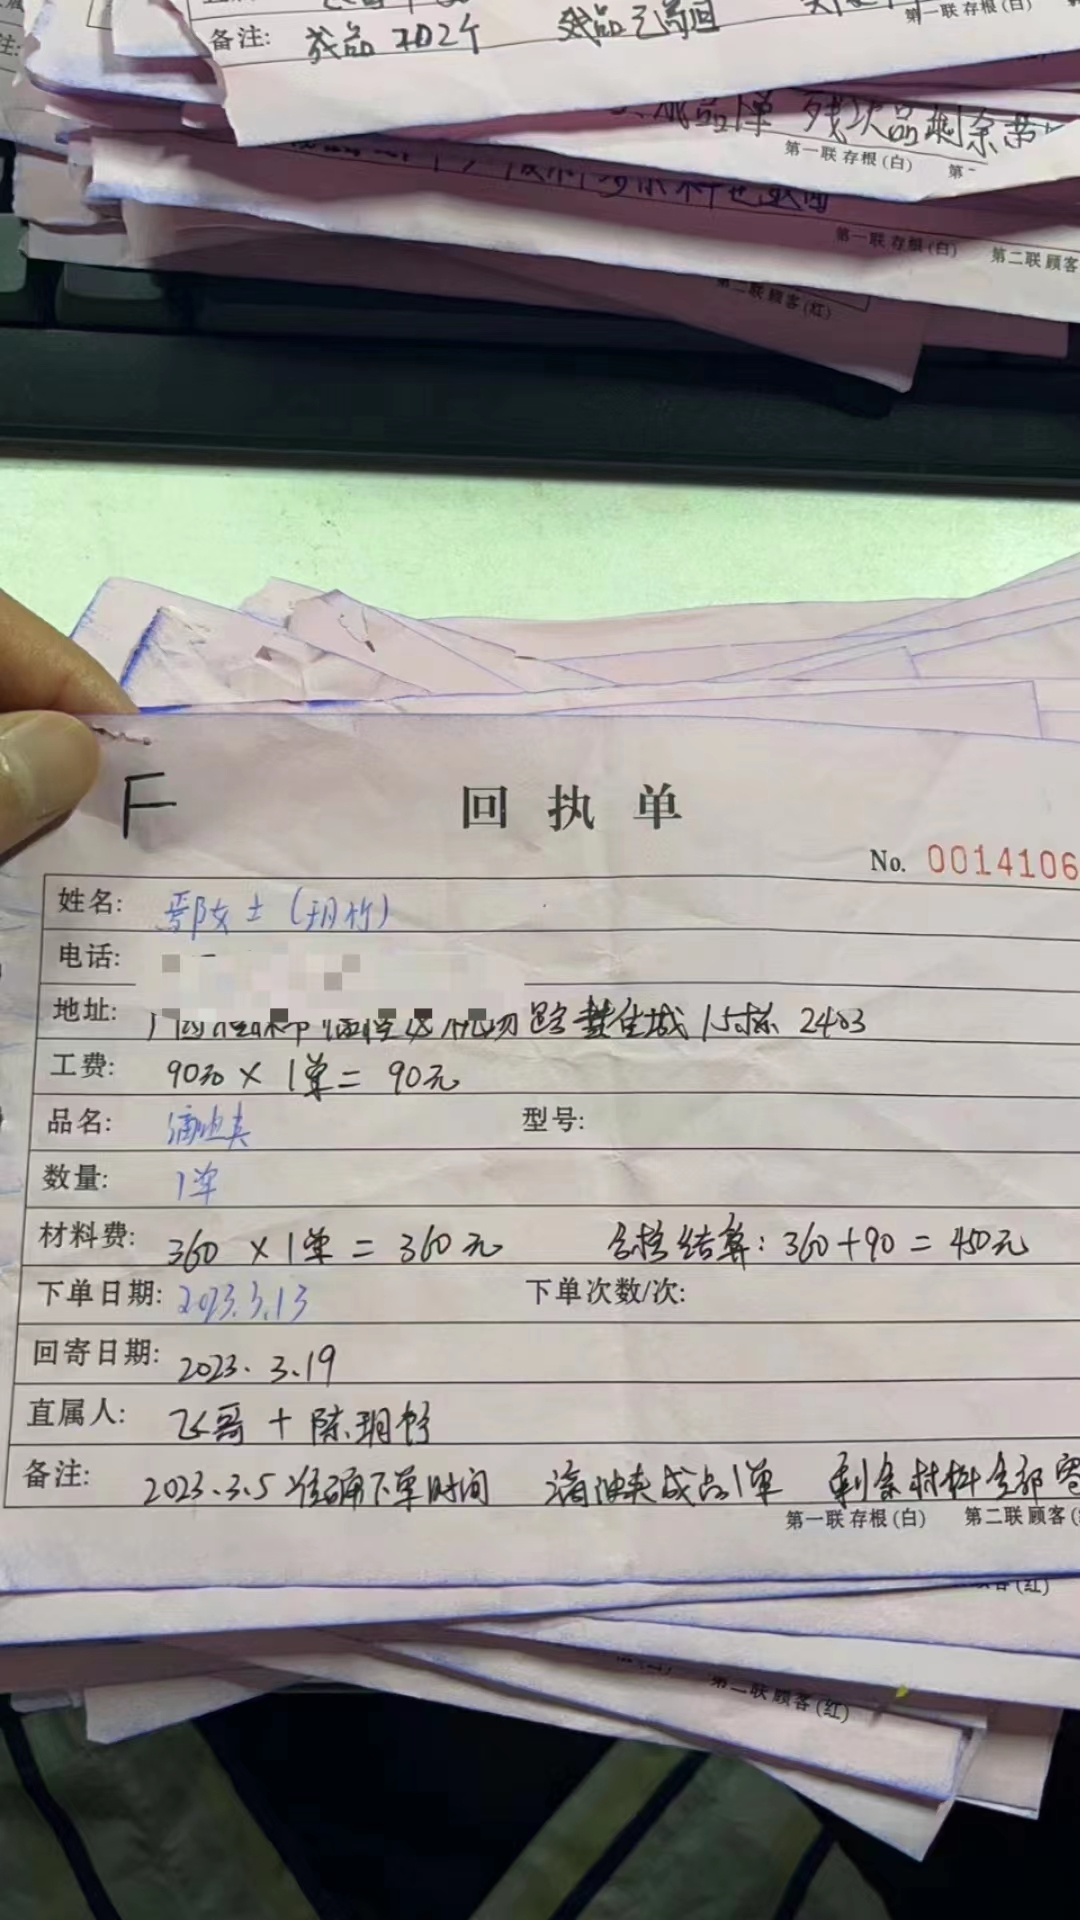 备注: 成品702个
第一联 存根(白)
成品1单 残次品剩余
第一联 存根(白) 第
第一联 存根(白) 第二联 顾客
第二联 顾客(红)
F
回执单
No. 0014106
姓名: 鄢女士(玥竹)
电话:
地址: 15栋 2403
工费: 90元 × 1单 = 90元
品名: 滴油夹 型号:
数量: 1单
材料费: 360 × 1单 = 360元 合格结算: 360+90 = 450元
下单日期: 2023.3.13 下单次数/次:
回寄日期: 2023.3.19
直属人: 飞哥 + 陈玥竹
备注: 2023.3.5 准确下单时间 滴油夹成品1单 剩余材料全部寄
第一联 存根(白) 第二联 顾客(
(红)
第二联 顾客(红)